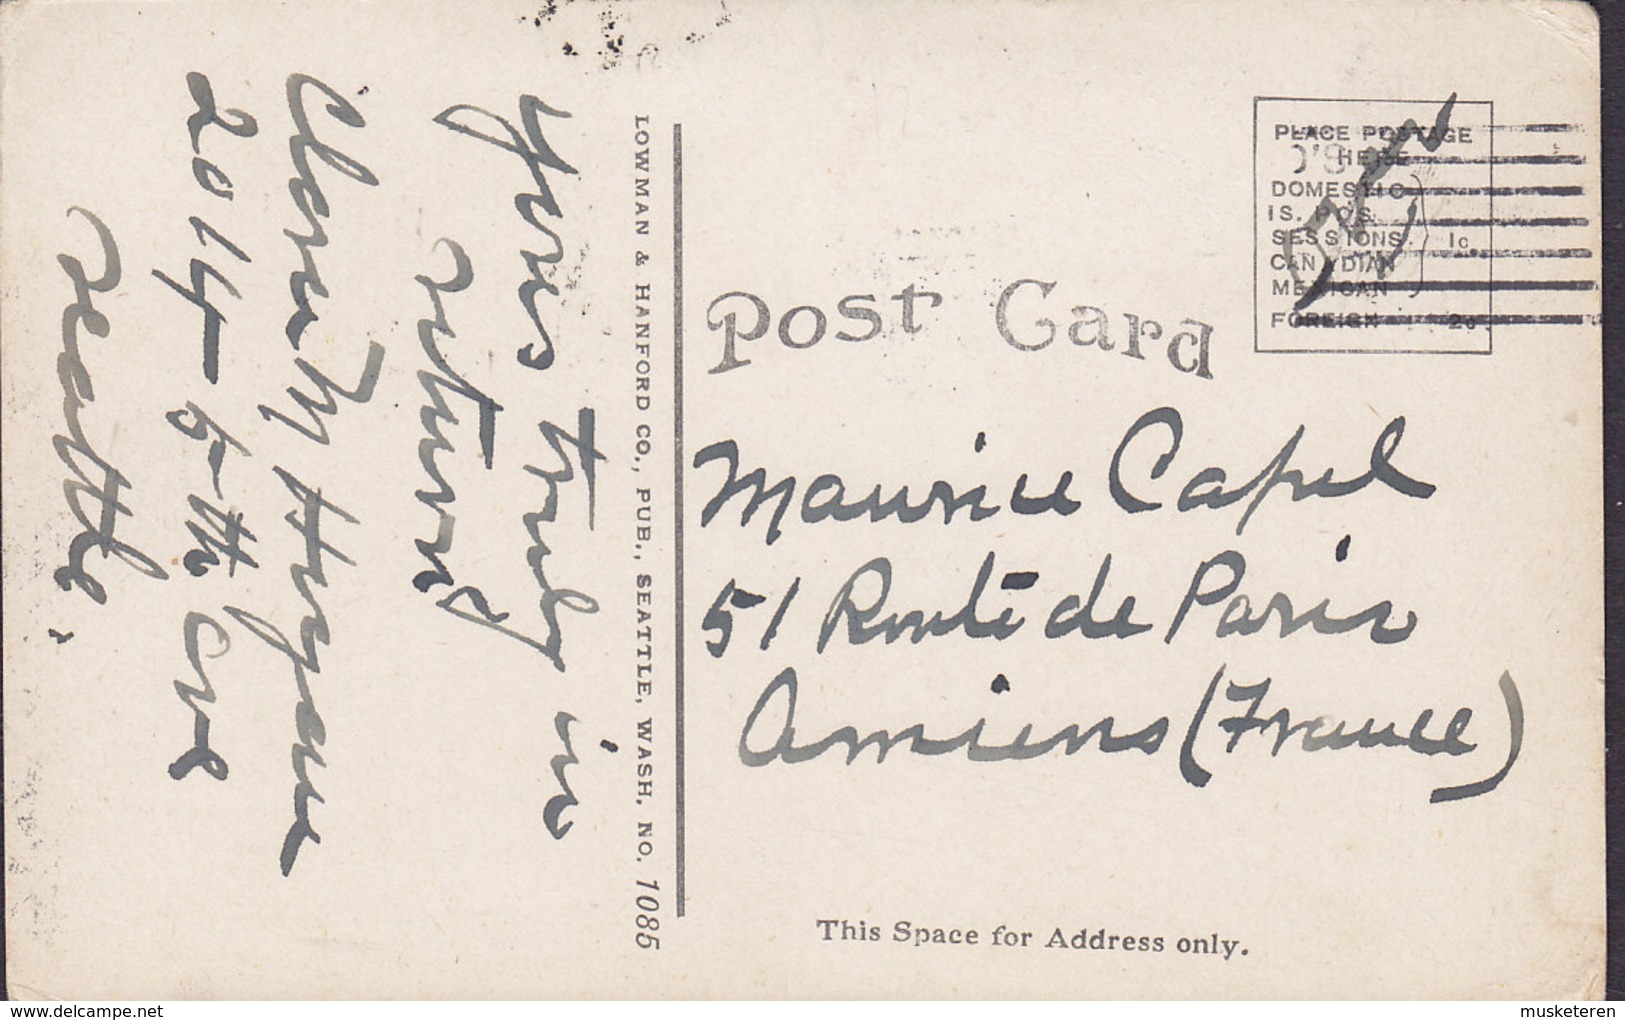 Yours truly in
return
Clara M Hayne
2014-5-th Ave
Seattle.
LOWMAN & HANFORD CO., PUB., SEATTLE, WASH. NO. 1085
Post Card
PLACE POSTAGE
HERE
DOMESTIC
IS. POS.
SESSIONS
CANADIAN
MEXICAN
1c.
FOREIGN 2c.
Maurice Capel
51 Route de Paris
Amiens (France)
This Space for Address only.
delcampe.net
musketeren